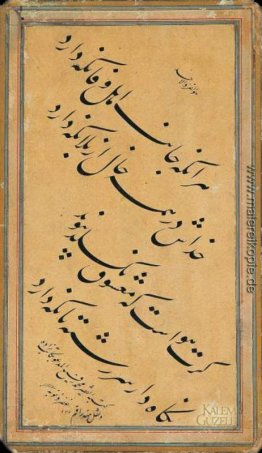 هر آنکه جانب اهل وفا نگه دارد
خداش در همه حال از بلا نگه دارد
گرت هواست که معشوق نگسلد پیوند
نگاه دار سر رشته تا نگه دارد
KALEM
GUZELİ
www.malereikopie.de